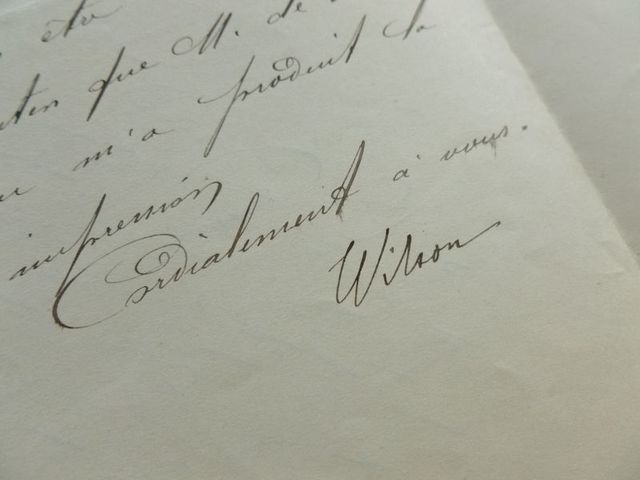 que M. de
m'a produit la
impression
Cordialement à vous.
Wilson